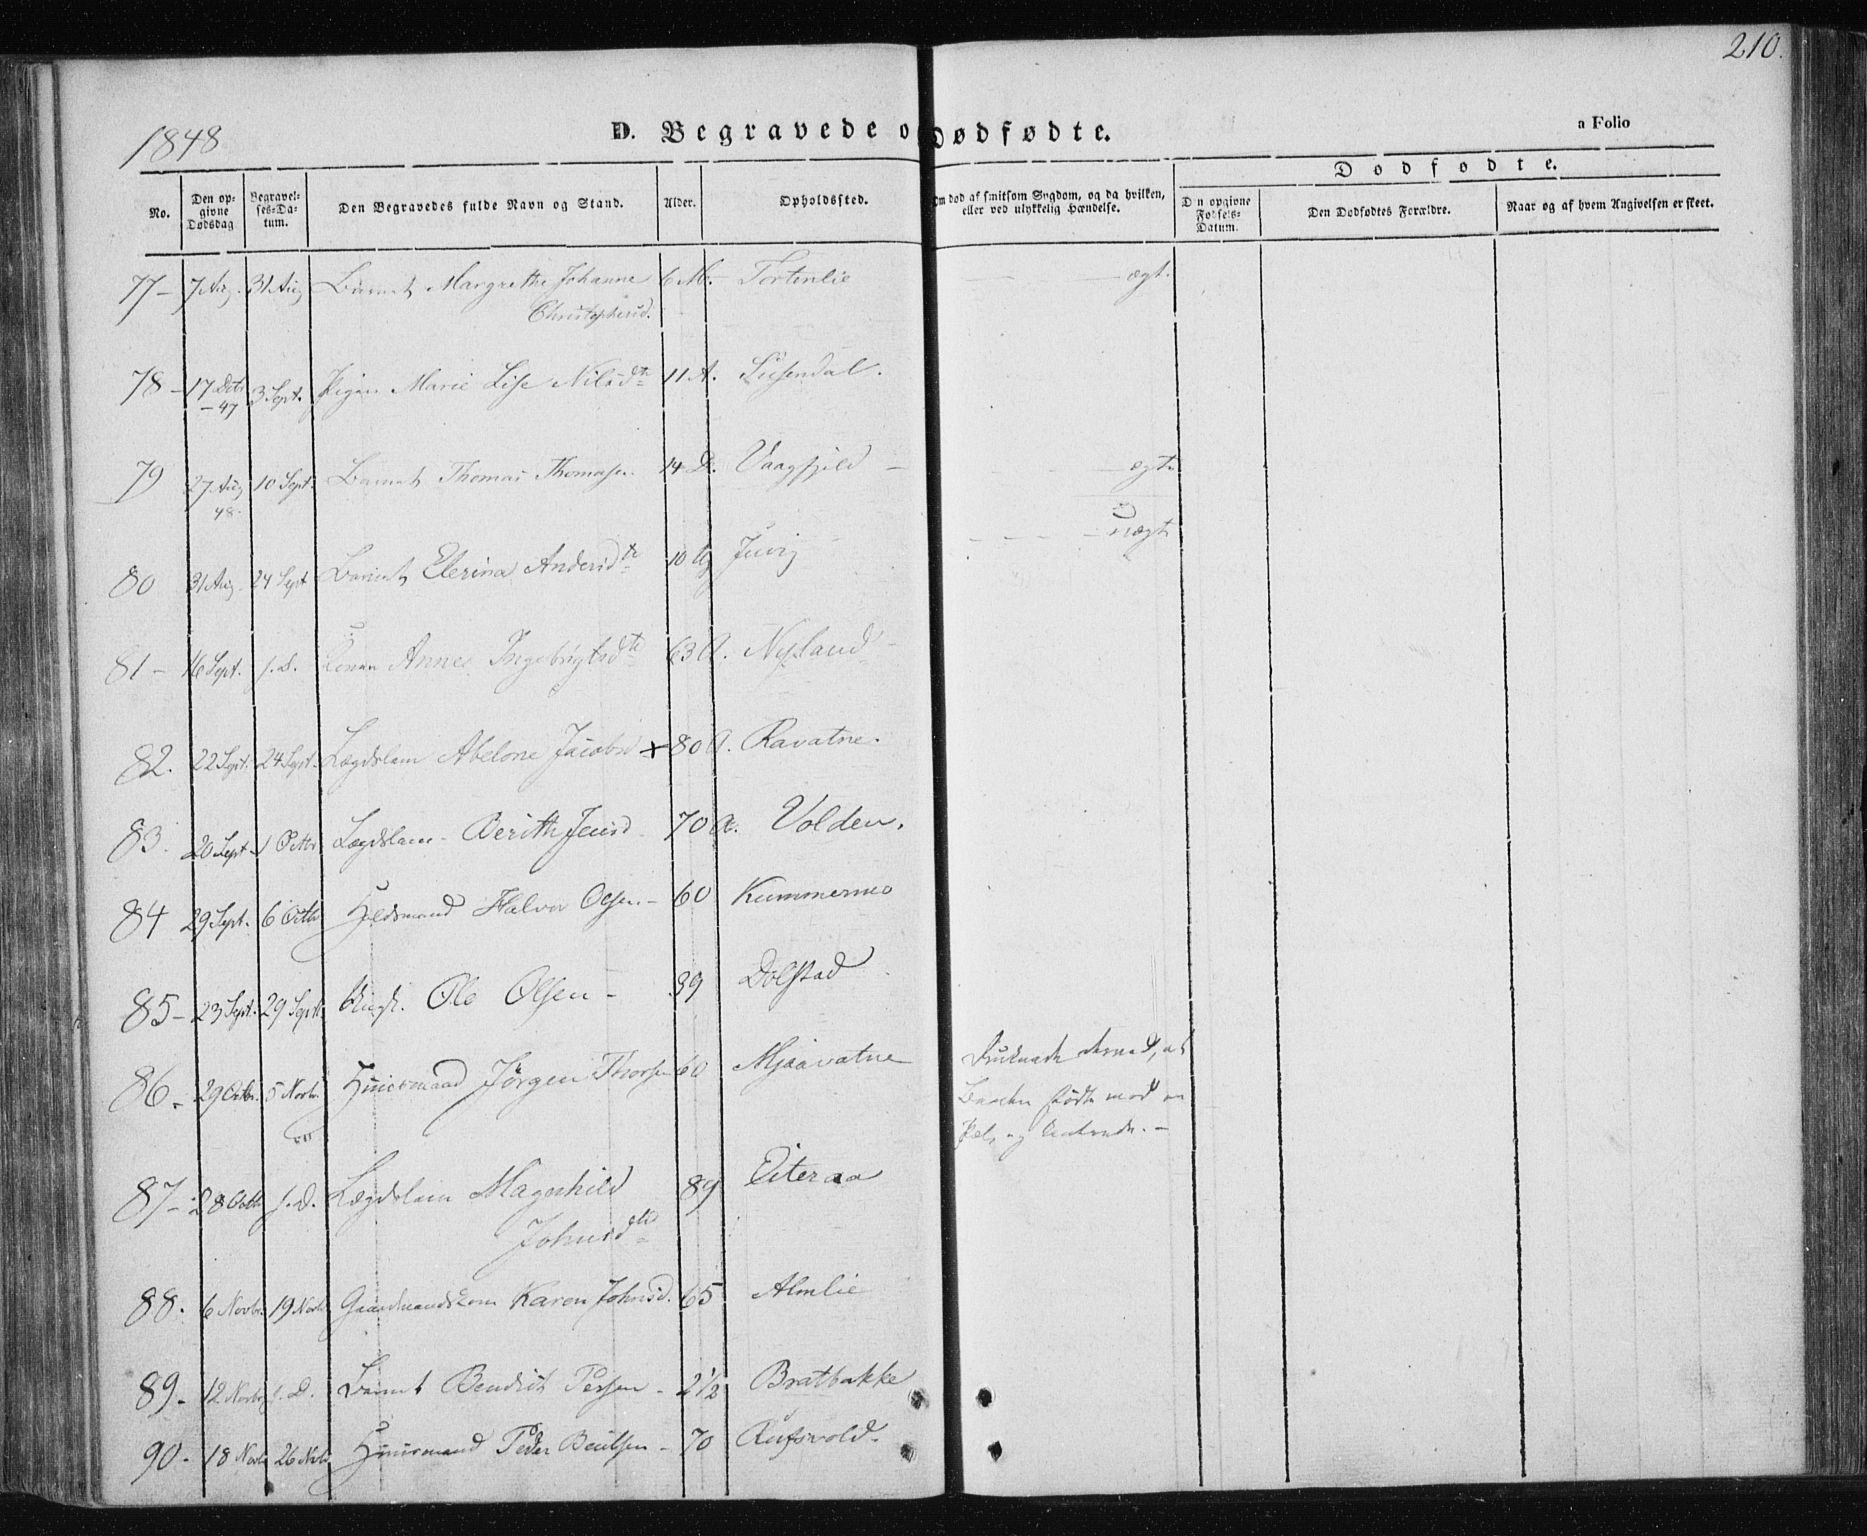 210.
1848
D. Begravede o Dødfødte.
a Folio
No.
Den opgivne Dødsdag
Begravelses-Datum.
Den Begravedes fulde Navn og Stand.
Alder.
Opholdssted.
Om død af smitsom Sygdom, og da hvilken, eller ved ulykkelig Hændelse.
Dødfødte.
Den opgivne Fødsels-Datum.
Den Dødfødtes Forældre.
Naar og af hvem Angivelsen er skeet.
77 - 7 Aug. 31 Aug Barnet Margrethe Johanne 6 M. - ægt.
Christophersd.
78 - 17 Octr 3 Sept. Pigen Marie Lise Nilsdtr 11 A. Susendal.
- 47
79 27 Aug 10 Sept. Barnet Thomas Thomasen 14 D. Vaagfjeld - ægte
48.
80 31 Aug. 24 Sept Barnet Elerina Andersdtr 10 uægt
81 - 16 Sept. s. D. Konen Anne Ingebrigtsdtr 63 A. Nyland
82. 22 Sept. 24 Sept. Lægdslem Abelone Jacobsd + 80 A. Ravatne.
83. 20 Sept - 1 Octbr Lægdslem - Berith Jensd - 70 A. Volden.
84 29 Sept. 6 Octbr Halvor Olsen - 60 Kummermo
85 - 23 Sept. 29 Sept. Ole Olsen - 89 Dolstad
86. - 29 Octbr. 5 Novbr. Huusmand Jørgen Thorsen 60 Mjaavatne Druknede derved, at
Baaden stødte mod en
Pæl, og
87 - 28 Octbr s. D. Lægdslem Magnhild 89 Eiteraa
Johnsdtr
88. 6 Novbr. 19 Novbr. Gaardmandskone Karen Johnsd. 65 Almlie
89 - 12 Novbr. s. D. Barnet Bendict Persen - 2 1/2 Bratbakke
90 - 18 Novbr 26 Novbr Huusmand Peder Bentsen - 70